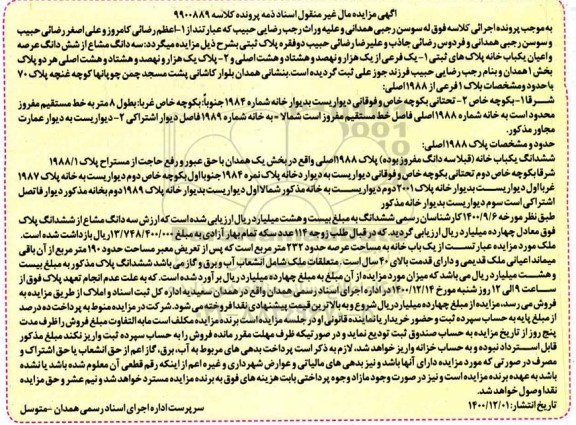 آگهی مزایده مال غیر منقول اسناد ذمه پرونده کلاسه ۹۹۰۰۸۸۹
به موجب پرونده اجرائی کلاسه فوق له سوسن رجبی همدانی و علیه وراث رجب رضایی حبیب که عبارتند از ۱- اعظم رضائی کامروز و علی اصغر رضائی حبیب
و سوسن رجبی همدانی و فردوس رضائی جاذب و علیرضا رضائی حبیب دو فقره پلاک ثبتی بشرح ذیل مزایده میگردد: سه دانگ مشاع از شش دانگ عرصه
و اعیان یکباب خانه پلاک های ثبتی ۱- یک فرعی از یک هزار و نهصد و هشتاد و هشت اصلی و ۲- پلاک یک هزار و نهصد و هشتاد و هشت اصلی هر دو پلاک
بخش ۱ همدان و بنام رجب رضایی حبیب فرزند جوز علی ثبت گردیده است. بنشانی همدان بلوار کاشانی پشت مسجد چمن چوپانها کوچه غنچه پلاک ۷۰
با حدود و مشخصات پلاک ۱ فرعی از ۱۹۸۸ اصلی:
شرقا ۱- بکوچه خاص ۲- تحتانی بکوچه خاص و فوقانی دیواریست بدیوار خانه شماره ۱۹۸۴ جنوباً: بکوچه خاص غربا: بطول ۸ متر به خط مستقیم مفروز
محدود است به خانه شماره ۱۹۸۸ اصلی فاصل خط مستقیم مفروز است شمالا - به خانه شماره ۱۹۸۹ فاصل دیوار اشتراکی ۲- دیواریست به دیوار عمارت
مجاور مذکور.
حدود و مشخصات پلاک ۱۹۸۸ اصلی:
ششدانگ یکباب خانه (قبلا سه دانگ مفروز بوده) پلاک ۱۹۸۸ اصلی واقع در بخش یک همدان با حق عبور و رفع حاجت از مستراح پلاک ۱۹۸۸/۱
شرقا بکوچه خاص دوم تحتانی بکوچه خاص و فوقانی دیواریست به دیوار دخانه پلاک نمره ۱۹۸۴ جنوبا اول بکوچه خاص دوم دیواریست به خانه پلاک ۱۹۸۷
غربا اول دیواریست به دیوار خانه پلاک ۲۰۰۱ دوم دیواریست به خانه مذکور شمالا اول دیواریست بدیوار خانه پلاک ۱۹۸۹ دوم بخانه مذکور دیوار فاصل
اشتراکی است سوم دیواریست بدیوار خانه مذکور
طبق نظر مورخه ۱۴۰۰/۹/۶ کارشناسان رسمی ششدانگ به مبلغ بیست و هشت میلیارد ریال ارزیابی شده است که ارزش سه دانگ مشاع از ششدانگ پلاک
فوق معادل چهارده میلیارد ریال ارزیابی گردید. که در قبال طلب زوجه ۱۱۴ عدد سکه تمام بهار آزادی به مبلغ ۱۳/۷۴۸/۴۰۰/۰۰۰ ریال بازداشت شده است.
ملک مورد مزایده عبارتست از یک باب خانه به مساحت عرصه حدود ۲۳۲ متر مربع است که پس از تعریض معبر مساحت حدود ۱۹۰ متر مربع از آن باقی
میماند اعیانی ملک قدیمی و دارای قدمت بالای ۴۰ سال است. متعلقات ملک شامل انشعاب آب و برق و گاز می باشد ششدانگ پلاک مذکور به مبلغ بیست
و هشت میلیارد ریال می باشد که میزان مورد مزایده از آن مبلغ به مبلغ چهارده میلیارد ریال برآورد شده است. که به علت عدم انجام تعهد پلاک فوق از
ساعت ۹ الی ۱۲ روز شنبه مورخ ۱۴۰۰/۱۲/۱۴ در اداره اجرای اسناد رسمی همدان واقع در همدان سعیدیه اداره کل ثبت اسناد و املاک از طریق مزایده به
فروش می رسد، مزایده از مبلغ چهارده میلیارد ریال شروع و به بالاترین قیمت پیشنهادی نقدا فروخته می شود. شرکت در مزایده منوط به پرداخت ده درصد
از مبلغ پایه به حساب سپرده ثبت و حضور خریدار یا نماینده قانونی او در جلسه مزایده است برنده مزایده مکلف است مابه التفاوت مبلغ فروش را ظرف مدت
پنج روز از تاریخ مزایده به حساب صندوق ثبت تودیع نماید و در صورتیکه ظرف مهلت مقرر مانده فروش را به حساب سپرده ثبت واریز نکند مبلغ مذکور
قابل استرداد نبوده و به حساب خزانه واریز خواهد شد، لازم به ذکر است پرداخت بدهی های مربوط به آب، برق، گاز اعم از حق انشعاب یا حق اشتراک و
مصرف در صورتی که مورد مزایده دارای آنها باشد و نیز بدهی های مالیاتی و عوارض شهرداری و غیره اعم از اینکه رقم قطعی آن معلوم شده باشد یا نشده
باشد به عهده برنده مزایده است و نیز در صورت وجود مازاد وجوه پرداختی بابت هزینه های فوق به برنده مزایده مسترد خواهد شد و نیم عشر و حق مزایده
نقدا وصول خواهد شد.
تاریخ انتشار: ۱۴۰۰/۱۲/۰۱
سرپرست اداره اجرای اسناد رسمی همدان - متوسل